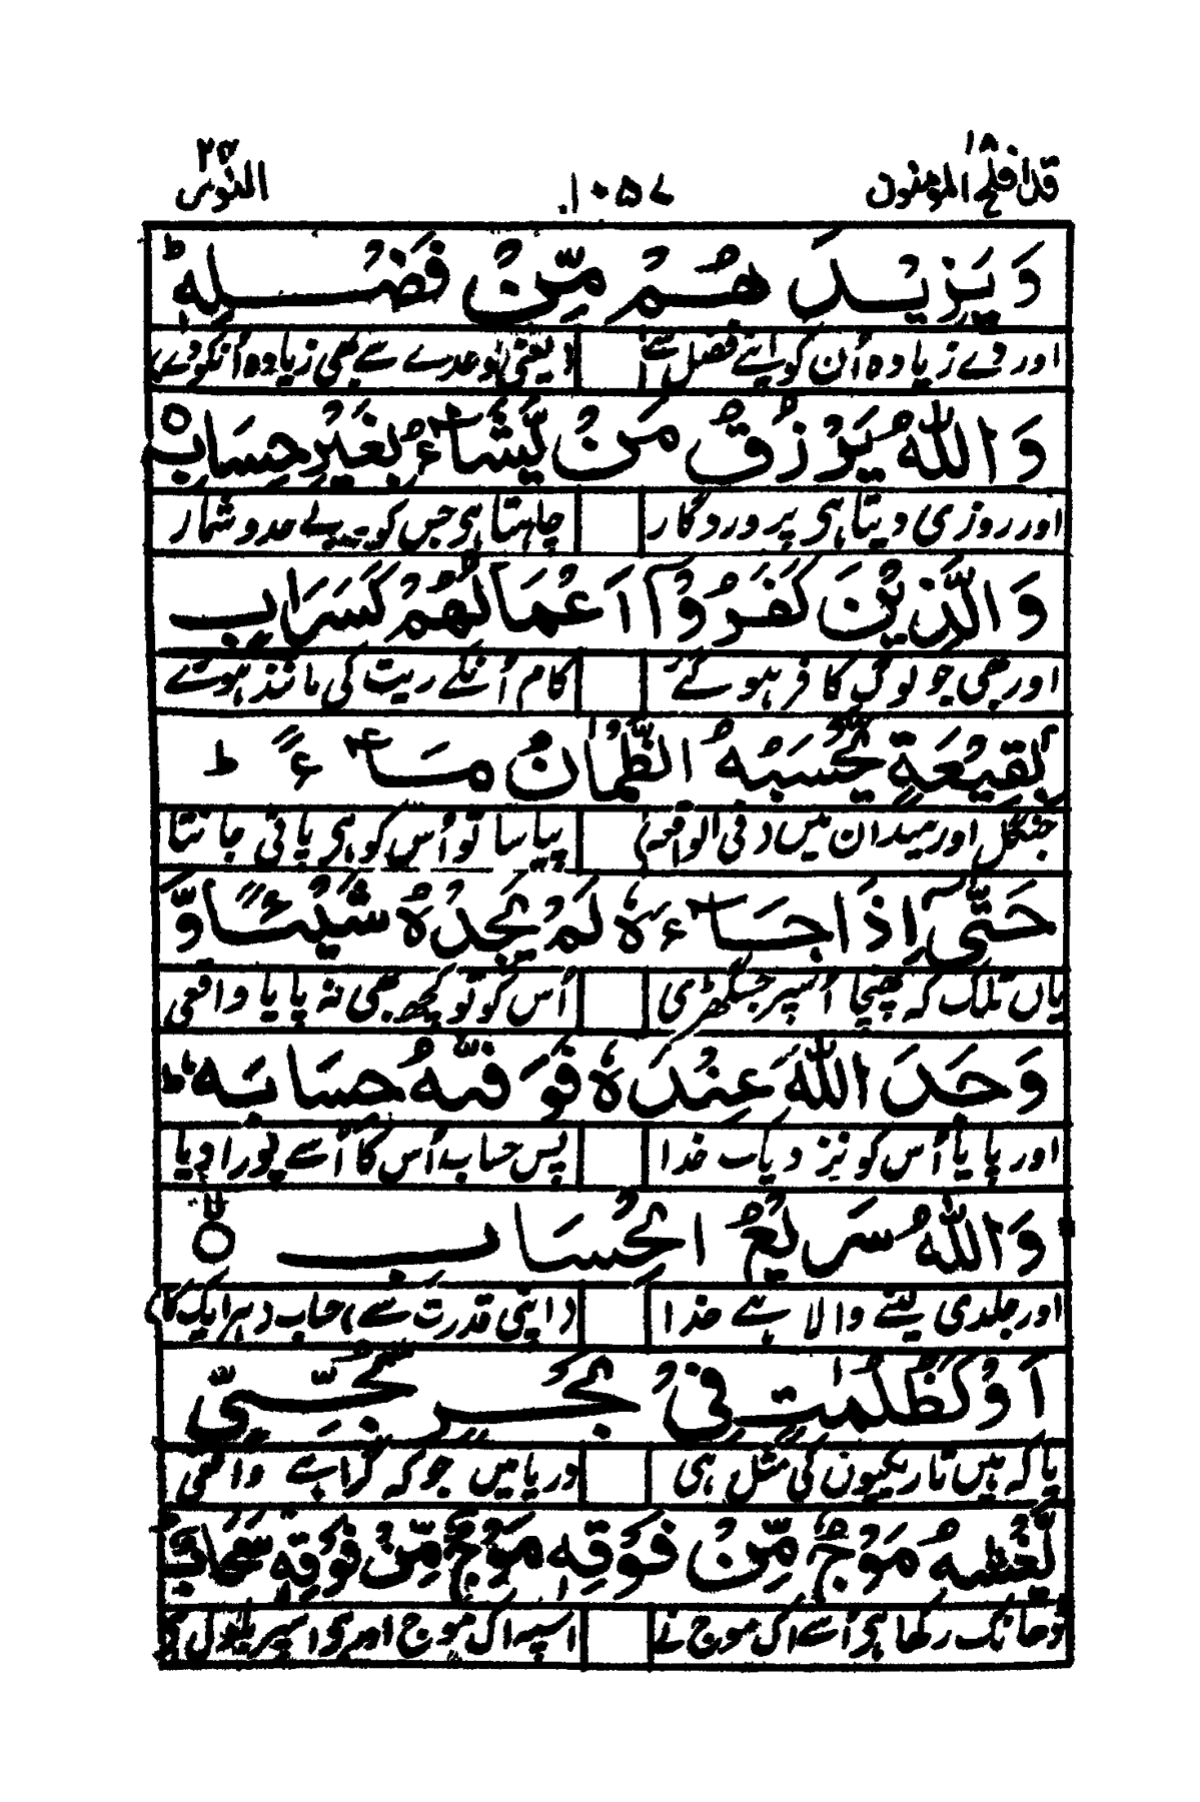 قد افلح المؤمنون ۱۸
۱۰۵۷
النور ۲۴
وَ يَزِيْدَ هُمْ مِّنْ فَضْلِهٖ ؕ
اور دے زیادہ اُن کو اپنے فضل سے (یعنی) وعدے سے بھی زیادہ اُنکو دے
وَاللّٰهُ يَرْزُقُ مَنْ يَّشَآءُ بِغَيْرِ حِسَابٍ ○
اور روزی دیتا ہی پروردگار چاہتا ہی جس کو بے حد و شمار
وَالَّذِيْنَ كَفَرُوْٓا اَعْمَالُهُمْ كَسَرَابٍ
اور بھی جو لوگ کافر ہو گئے کام اُنکے ریت کی مانند ہوئے
بِقِيْعَةٍ يَّحْسَبُهُ الظَّمْاٰنُ مَآءً ؕ
جنگل اور میدان میں (فی الواقعہ) پیاسا تو اُس کو ہی پانی جانتا
حَتّٰٓى اِذَا جَآءَهٗ لَمْ يَجِدْهُ شَيْئًا وَّ
یاں تلک کہ پہنچا اُسپر جس گھڑی اُس کو تو کچھ بھی نہ پایا واقعی
وَجَدَ اللّٰهَ عِنْدَهٗ فَوَفّٰىهُ حِسَابَهٗ ؕ
اور پایا اُس کو نزدیک خدا پس حساب اُس کا اُسے پورا دیا
وَاللّٰهُ سَرِيْعُ الْحِسَابِ ○ ۙ
اور جلدی لینے والا ہے خدا (اپنی قدرت سے) حساب (ہر ایک کا)
اَوْ كَظُلُمٰتٍ فِيْ بَحْرٍ لُّجِّيٍّ
یا کہ ہیں تاریکیوں کی مثل ہی دریا میں جو کہ گہرا ہے واقعی
يَّغْشٰىهُ مَوْجٌ مِّنْ فَوْقِهٖ مَوْجٌ مِّنْ فَوْقِهٖ سَحَابٌ
ڈھانک رکھا ہی اُسے اک موج نے اسپہ اک موج اور ہی اسپر بادل